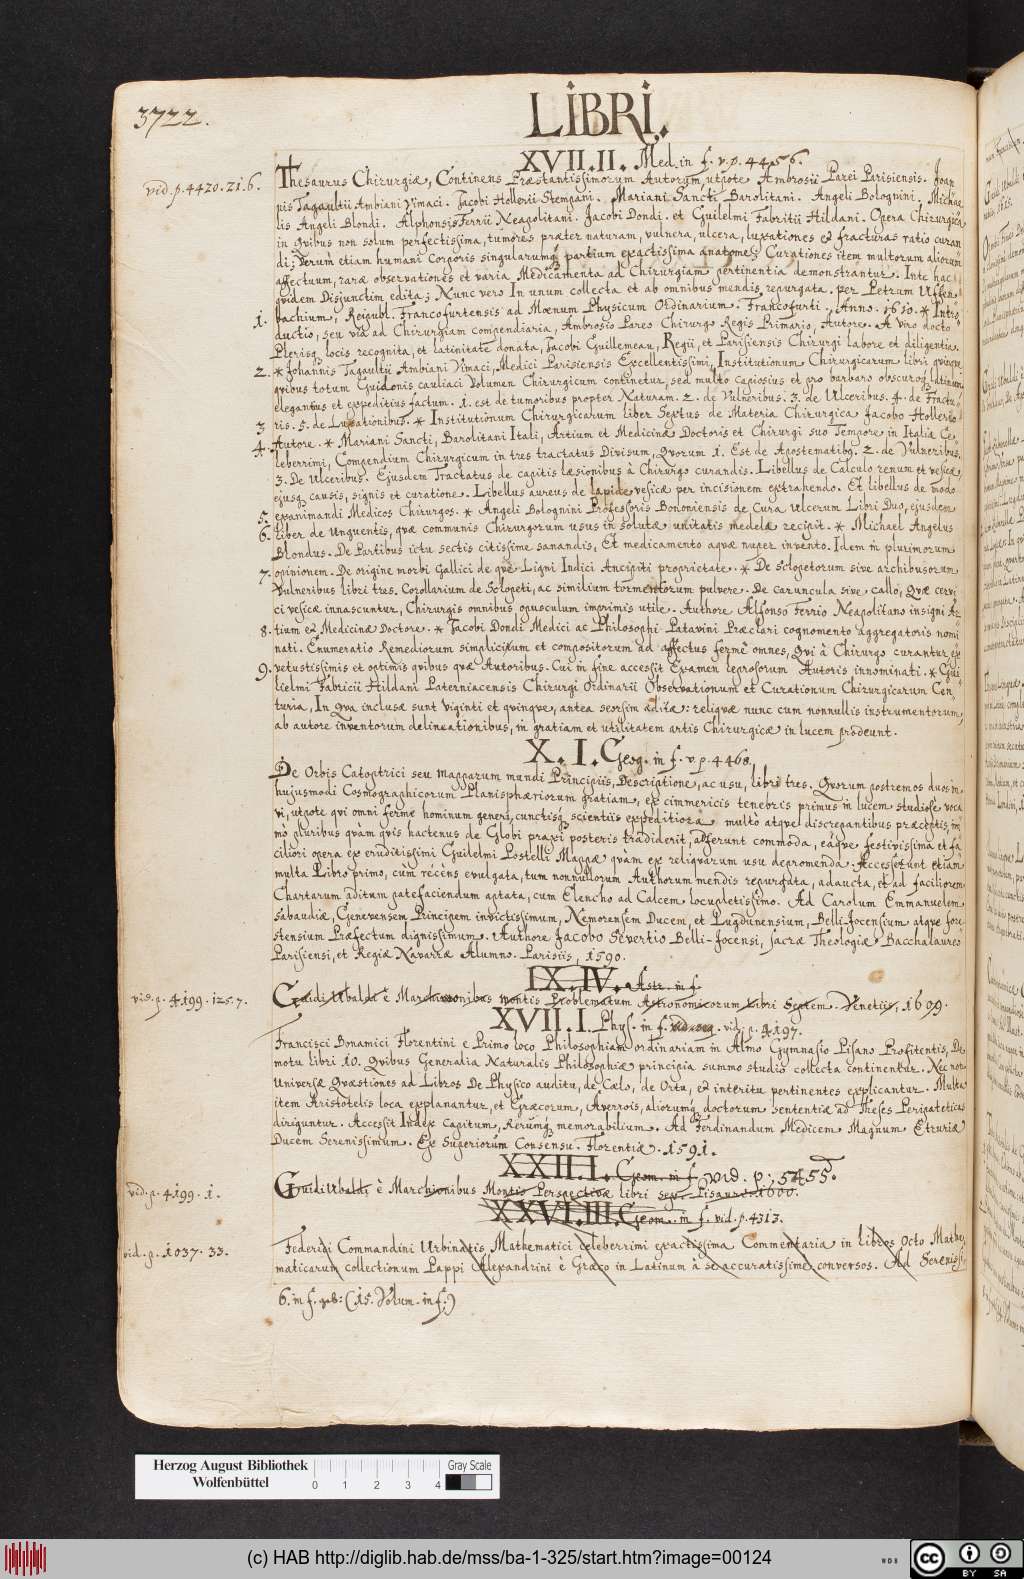 3722.
LIBRI.
XVII.II. Med. in f. v. p. 4456.
vid. p. 4420. 21. 6.
Thesaurus Chirurgiæ, Continens Præstantissimorum Autorum, utpote Ambrosii Parei Parisiensis. Joan
nis Tagaultii Ambiani Vimaci. Jacobi Hollerii Stempani. Mariani Sancti Barolitani. Angeli Bolognini. Michae
lis Angeli Blondi. Alphonsi Ferrii Neapolitani. Jacobi Dondi. et Guilelmi Fabritii Hildani. Opera Chirurgica
in qvibus non solum perfectissima, tumores præter naturam, vulnera, ulcera, luxationes et fracturas ratio curan
di; Verum etiam humani Corporis singularumq partium exactissima anatome; Curationes item multorum aliorum
affectuum, raræ observationes et varia Medicamenta ad Chirurgiam pertinentia demonstrantur. Inte hac
qvidem Disjunctim edita; Nunc vero In unum collecta et ab omnibus mendis repurgata. per Petrum Uffen
bachium, Reipubl. Francofurtensis ad Mœnum Physicum Ordinarium. Francofurti, Anno. 1610. * Intro
1. ductio, seu via ad Chirurgiam compendiaria, Ambrosio Pareo Chirurgo Regis Primario, Autore. A viro docto
Plerisq locis recognita, et latinitate donata, Jacobi Guillemeau, Regii, et Parisiensis Chirurgi labore et diligentia.
2. * Johannis Tagaultii Ambiani Vimaci, Medici Parisiensis Excellentissimi, Institutionum Chirurgicarum libri qvinqve
qvibus totum Guidonis cauliaci Volumen Chirurgicum continetur, sed multo capiosius et pro barbaro obscuroq latinum
elegantius et expeditius factum. 1. est de tumoribus propter Naturam. 2. de Vulneribus. 3. de Ulceribus. 4. de Fractu
3. ris. 5. de Luxationibus. * Institutionum Chirurgicarum liber Sextus de Materia Chirurgica Jacobo Hollerio
4. Autore. * Mariani Sancti, Barolitani Itali, Artium et Medicinæ Doctoris et Chirurgi suo Tempore in Italia Ce
leberrimi, Compendium Chirurgicum in tres tractatus Divisum, Qvorum 1. Est de Apostematibq. 2. de Vulneribus.
3. De Ulceribus. Ejusdem Tractatus de capitis læsionibus à Chirurgo curandis. Libellus de Calculo renum et vesicæ,
ejusq causis, signis et curatione. Libellus aureus de lapide vesicæ per incisionem extrahendo. Et libellus de modo
5. examinandi Medicos Chirurgos. * Angeli Bolognini Professoris Bononiensis de Cura Ulcerum Libri Duo, ejusdem
6. Liber de Unguentis, qvæ communis Chirurgorum usus in solutæ unitatis medelâ recipit. * Michael Angelus
Blondus. De Partibus ictu sectis citissime sanandis, Et medicamento aqvæ nuper invento. Idem in plurimorum
7. opinionem. De origine morbi Gallici de qve Ligni Indici Ancipiti proprietate. * De sclopetorum sive archibusorum
Vulneribus libri tres. Corollarium de Sclopeti, ac similium tormentorum pulvere. De caruncula sive callo, Qvæ cervi
ci vesicæ innascuntur, Chirurgis omnibus opusculum imprimis utile. Authore Alfonso Ferrio Neapolitano insigni Ar
8. tium et Medicinæ Doctore. * Jacobi Dondi Medici ac Philosophi Patavini Præclari cognomento aggregatoris nomi
nati. Enumeratio Remediorum simplicium et compositorum ad affectus fermè omnes, qvi à Chirurgo curantur, ex
9. vetustissimis et optimis qvibus qvæ Autoribus. Cui in fine accessit Examen leprosorum Autoris innominati. * Gui
lielmi Fabricii Hildani Paterniacensis Chirurgi Ordinarii Observationum et Curationum Chirurgicarum Cen
turia, In qva inclusæ sunt viginti et qvinqve, antea seorsim æditæ: reliqvæ nunc cum nonnullis instrumentorum,
ab autore inventorum delineationibus, in gratiam et utilitatem artis Chirurgicæ in lucem prodeunt.
X. I. Geog. in f. v. p. 4468.
De Orbis Catoptrici seu mapparum mundi Principiis, Descriptione, ac usu, libri tres. Qvorum postremos duos in
hujusmodi Cosmographicorum Planisphæriorum gratiam, ex cimmericis tenebris primus in lucem studiose voca
vi, utpote qvi omni ferme hominum generi, cunctisq scientiis expeditiora multo atque discrepantibus præceptis, im
mo pluribus qvàm qvis hactenus de Globi praxi posteris tradiderit, afferunt commoda, eaqve festivissima et fa
ciliori opera ex eruditissimi Guilelmi Postelli Mappa, qvàm ex reliqvarum usu depromenda. Accesserunt etiam
multa Libro primo, cum recens evulgata, tum nonnullorum Authorum mendis repurgata, adaucta, et ad faciliorem
Chartarum aditum patefaciendum aptata, cum Elencho ad Calcem locupletissimo. Ad Carolum Emmanuelem
Sabaudiæ, Genevensem Principem invictissimum, Nemorensem Ducem, et Lugdunensium, Belli-Jocensium atqve fore
stensium Præfectum dignissimum. Authore Jacobo Severtio Belli-Jocensi, sacræ Theologiæ Bacchalaureo
Parisiensi, et Regiæ Navarræ Alumno. Parisiis, 1590.
IX. IV. Astr. in f.
vid. p. 4199. 125. 7.
Guidi Ubaldi è Marchionibus Montis Problematum Astronomicorum Libri Septem. Venetiis, 1609.
XVII. I. Phys. in f. vid. p. 4197.
Francisci Bonamici Florentini e Primo loco Philosophiam ordinariam in Almo Gymnasio Pisano Profitentis, De
motu libri 10. Qvibus Generalia Naturalis Philosophiæ principia summo studio collecta continentur. Nec non
Universæ Qvæstiones ad Libros De Physico auditu, de Cælo, de Ortu, et interitu pertinentes explicantur. Multa
item Aristotelis loca explanantur, et Græcorum, Averrois, aliorumq doctorum sententiæ ad Theses Peripateticas
diriguntur. Accessit Index Capitum, Rerumq memorabilium. Ad Ferdinandum Medicem Magnum Etruriæ
Ducem Serenissimum. Ex Superiorum Consensu. Florentiæ. 1591.
XXIII.I. Geom. in f. vid. p. 5455.
vid. p. 4199. 1.
Guidi Ubaldi, è Marchionibus Montis Perspectivæ libri sex. Pisauri. 1600.
XXVI.III. Geom. in f. vid. p. 4313.
vid. p. 1037. 33.
Federici Commandini Urbinatis Mathematici celeberrimi exactissima Commentaria in libros Octo Mathe
maticarum collectionum Pappi Alexandrini è Græco in Latinum à se accuratissime conversos. Ad Serenissi
6. in f. geb: (15. Volum. in f:)
Herzog August Bibliothek
Wolfenbüttel
0 1 2 3 4
Gray Scale
(c) HAB http://diglib.hab.de/mss/ba-1-325/start.htm?image=00124
WDB
CC BY SA